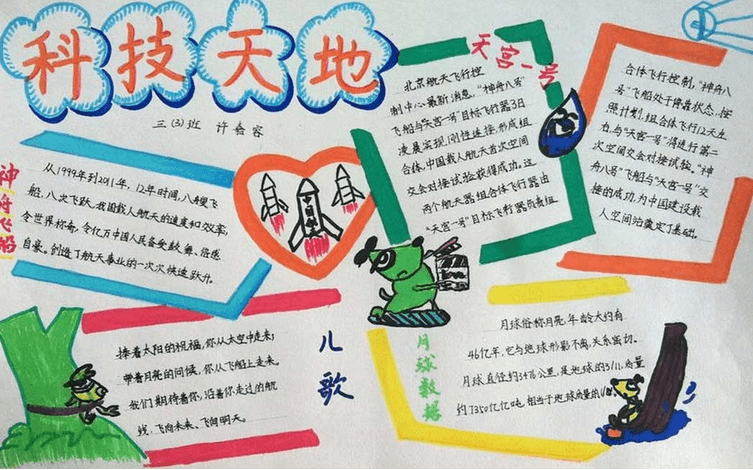 科技天地
三(3)班 许睿容
神舟飞船
从1999年到2011年,12年时间,八艘飞
船,八次飞跃,我国载人航天的速度和效率,
令世界称奇,令亿万中国人民备受鼓舞、倍感
自豪,创造了航天事业的一次次快速跃升。
中国航天
天宫一号
北京航天飞行控
制中心最新消息,“神舟八号”
飞船与“天宫一号”目标飞行器3日
凌晨实现刚性连接,形成组
合体,中国载人航天首次空间
交会对接试验获得成功。这
两个航天器组合体飞行器由
“天宫一号”目标飞行器负责组
合体飞行控制,“神舟八
号”飞船处于停靠状态,按
照计划,组合体飞行12天左
右,与“天宫一号”将进行第二
次空间交会对接试验。“神
舟八号”飞船与“天宫一号”交
接的成功,为中国建设载
人空间站奠定了基础。
儿歌
捧着太阳的祝福,你从太空中走来;
带着月亮的问候,你从飞船上走来。
我们期待着你,沿着你走过的航
线,飞向未来、飞向明天。
月球数据
月球俗称月亮,年龄大约有
46亿年,它与地球形影不离,关系密切。
月球直径约3476公里,是地球的3/11,质量
约7350亿亿吨,相当于地球质量的1/81